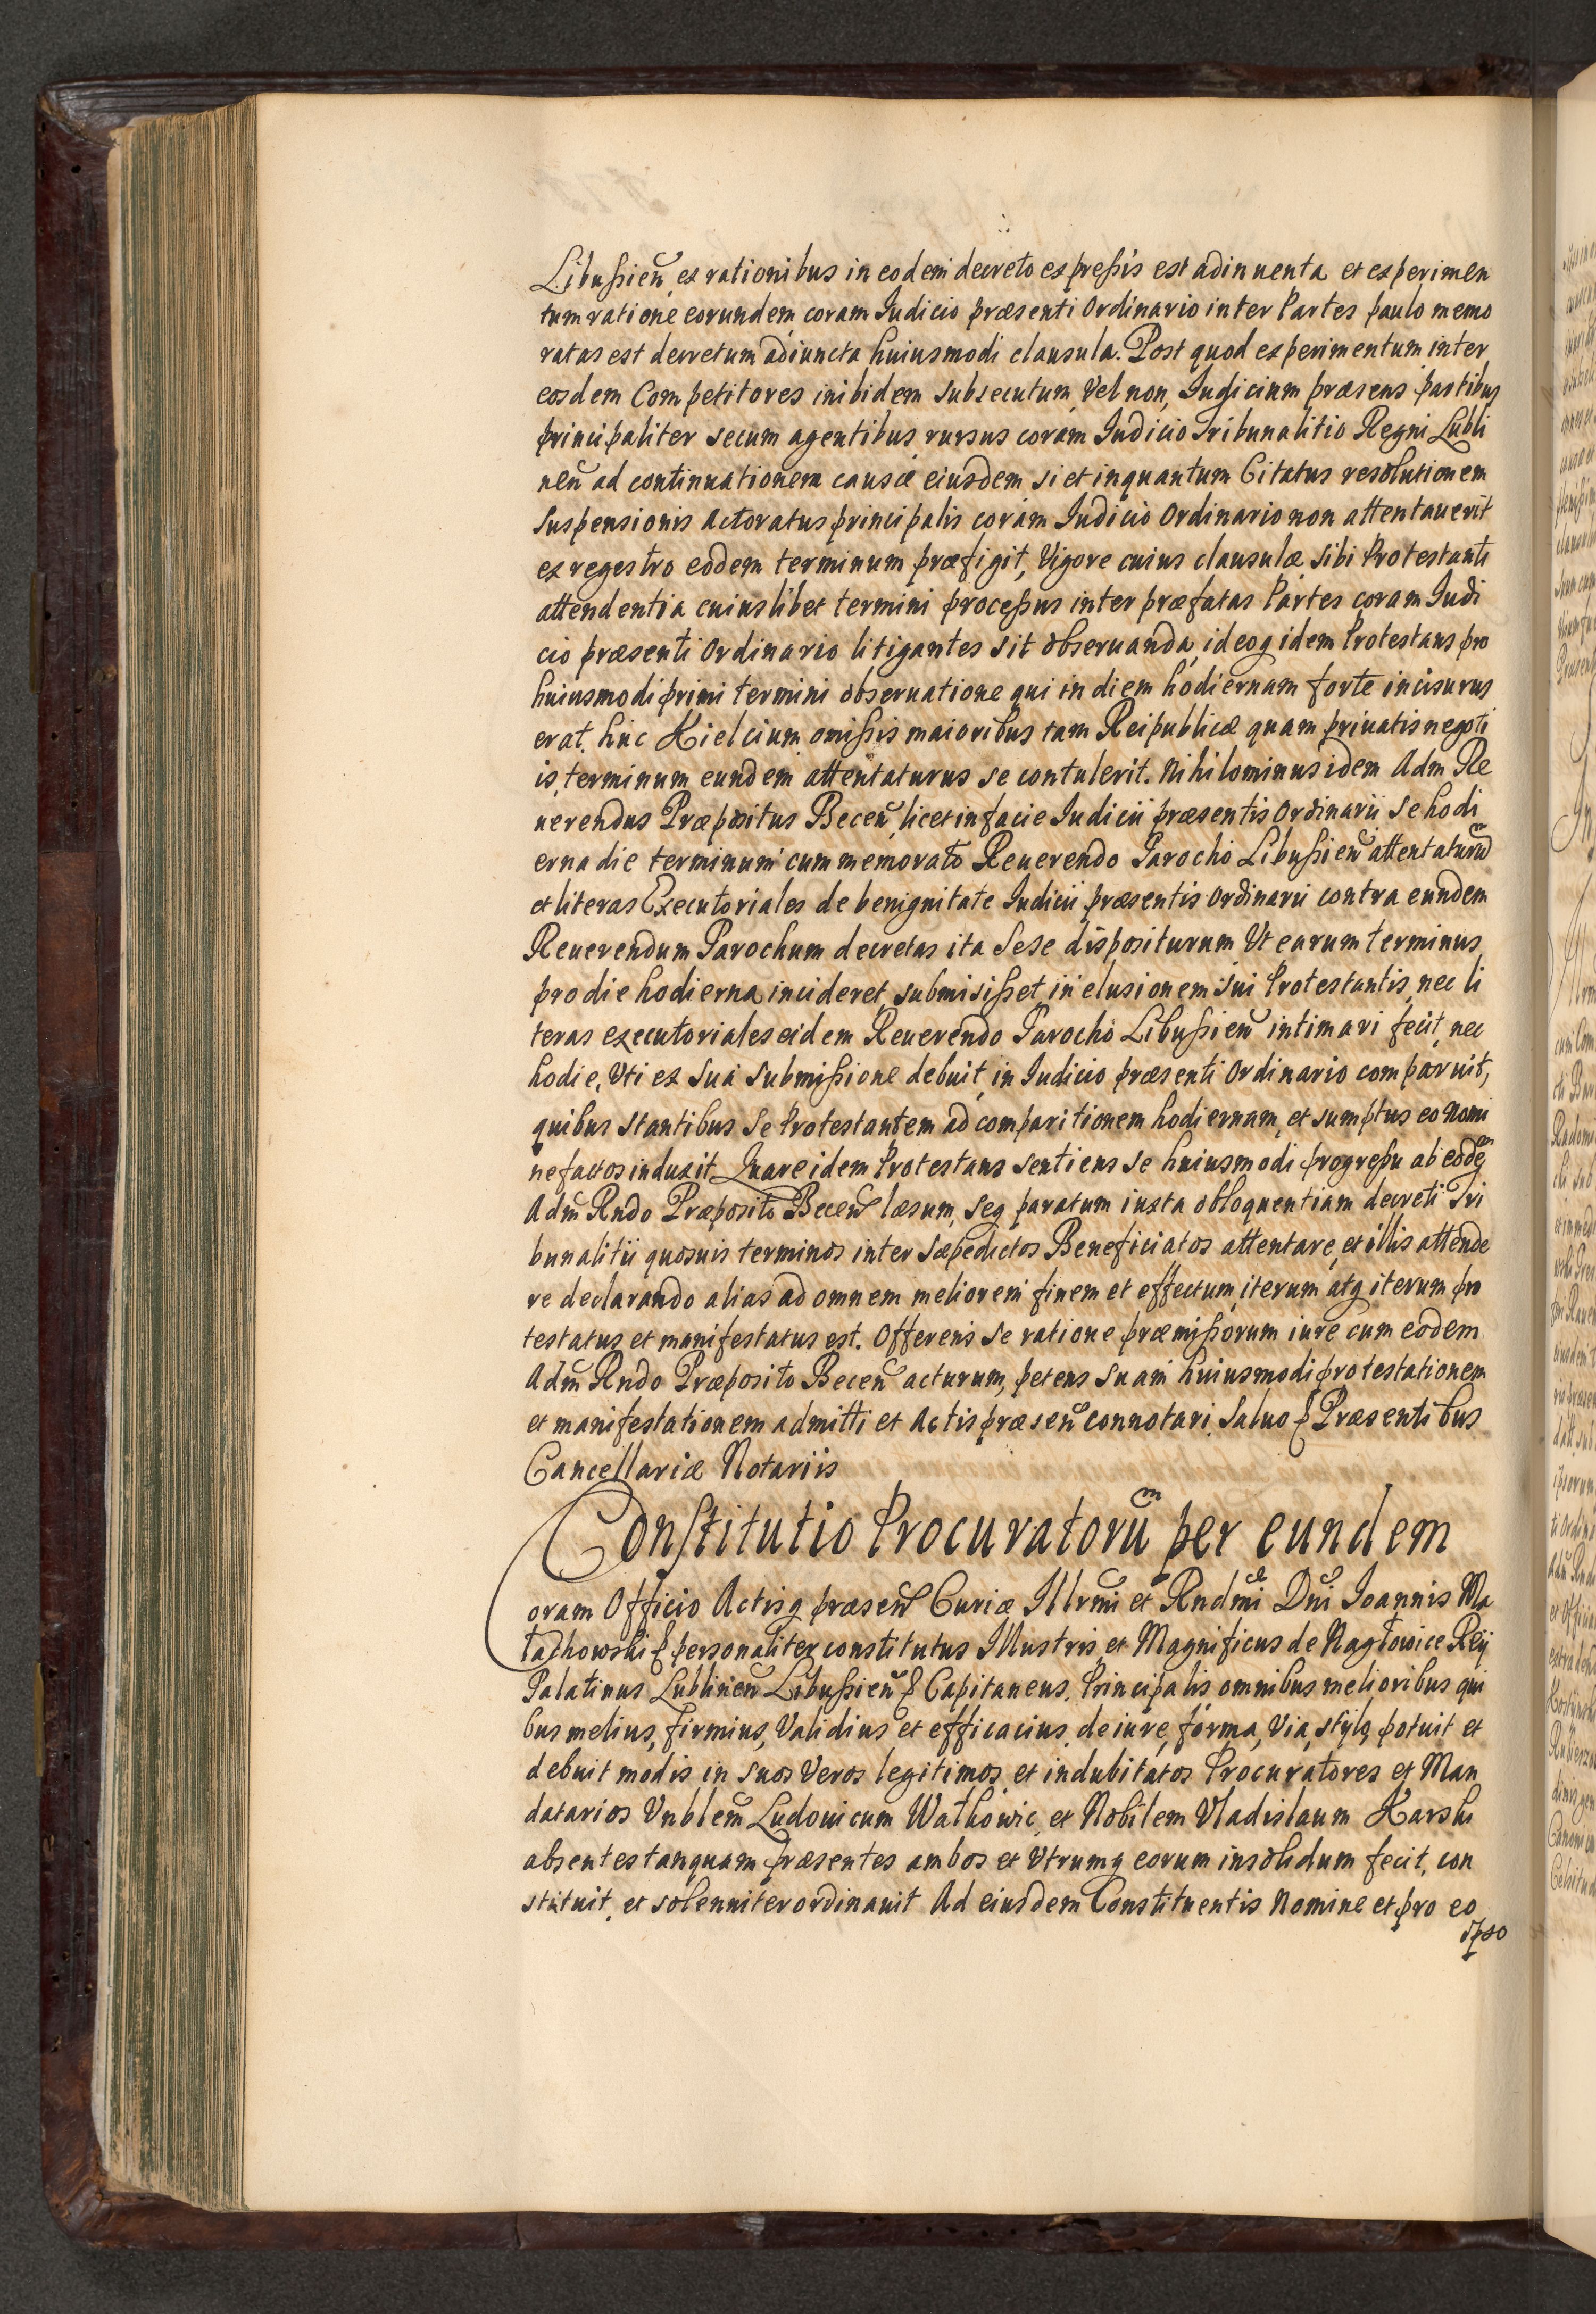 Libuſsieñ ex rationibus in eodem decreto expreſsis est adinuenta et experimen
tum ratione eorundem coram Iudicio præsenti Ordinario inter Partes paulo memo
ratas est decretum adiuncta huiusmodi clausula. Post quod experimentum inter
eosdem Competitores inibidem subsecutum, Vel non, Iudicium præsens partibus
principaliter secum agentibus rursus coram Iudicio Tribunalitio Regni Lubli
neñ ad continuationem causæ eiusdem si et inquantum Citatus resolutionem
suspensionis Actoratus principalis coram Iudicio Ordinario non attentauerit
ex regestro eodem terminum præfigit, Vigore cuius clausulæ sibi Protestanti
attendentia cuiuslibet termini proceſsus inter præfatas Partes coram Iudi
cio præsenti Ordinario litigantes sit obseruanda, ideoq idem Protestans pro
huiusmodi primi termini obseruatione qui in diem hodiernam forte incisurus
erat. huc Kielcium omiſsis maioribus tam Reipublicæ quam priuatis negoti
is, terminum eundem attentaturus se contulerit. Nihilominus idem Adm Re
uerendus Præpositus Beceñ, licet in facie Iudicii præsentis Ordinarii se hodi
erna die terminum cum memorato Reuerendo Parocho Libuſsieñ attentaturũ
et literas Executoriales de benignitate Iudicii præsentis Ordinarii contra eundem
Reuerendum Parochum decretas ita sese dispositurum, Vt earum terminus
pro die hodierna incideret, submisiſset, in elusionem sui Protestantis, nec li
teras executoriales eidem Reuerendo Parocho Libuſsieñ intimari fecit, nec
hodie, Vti ex sua submiſsione debuit, in Iudicio præsenti Ordinario comparuit,
quibus stantibus se Protestantem ad comparitionem hodiernam, et sumptus eo nomi
ne factos induxit. Quare idem Protestans sentiens se huiusmodi progreſsu ab eodẽ
Adm̃ Rndo Præposito Beceñ læsum, seq paratum iuxta obloquentiam decreti Tri
bunalitii quosuis terminos inter sæpedictos Beneficiatos attentare, et illis attende
re declarando alias ad omnem meliorem finem et effectum, iterum atq iterum pro
testatus et manifestatus est. Offerens se ratione præmiſsorum iure cum eodem
Adm̃ Rndo Præposito Beceñ acturum, petens suam huiusmodi protestationem
et manifestationem admitti et Actis præseñ connotari. Saluo & Præsentibus
Cancellariæ Notariis
Conſtitutio Procuratorũ per eundem
oram Officio Actisq præseñ Curiæ Illrmi et Rndmi Dñi Ioannis Ma
łachowski & personaliter constitutus Illustris et Magnificus de Nagłowice Reij
Palatinus Lublineñ Libuſsieñ & Capitaneus. Principalis omnibus melioribus qui
bus melius, firmius, Validius et efficacius, de iure, forma, Via, stylo, potuit et
debuit modis in suos Veros legitimos et indubitatos Procuratores et Man
datarios Vnblem̃ Ludouicum Wałkowic, et Nobilem Vladislaum Karski
absentes tanquam præsentes ambos et Vtrumq eorum insolidum fecit, con
stituit, et solenniter ordinauit Ad eiusdem Constituentis Nomine et pro eo
ipso